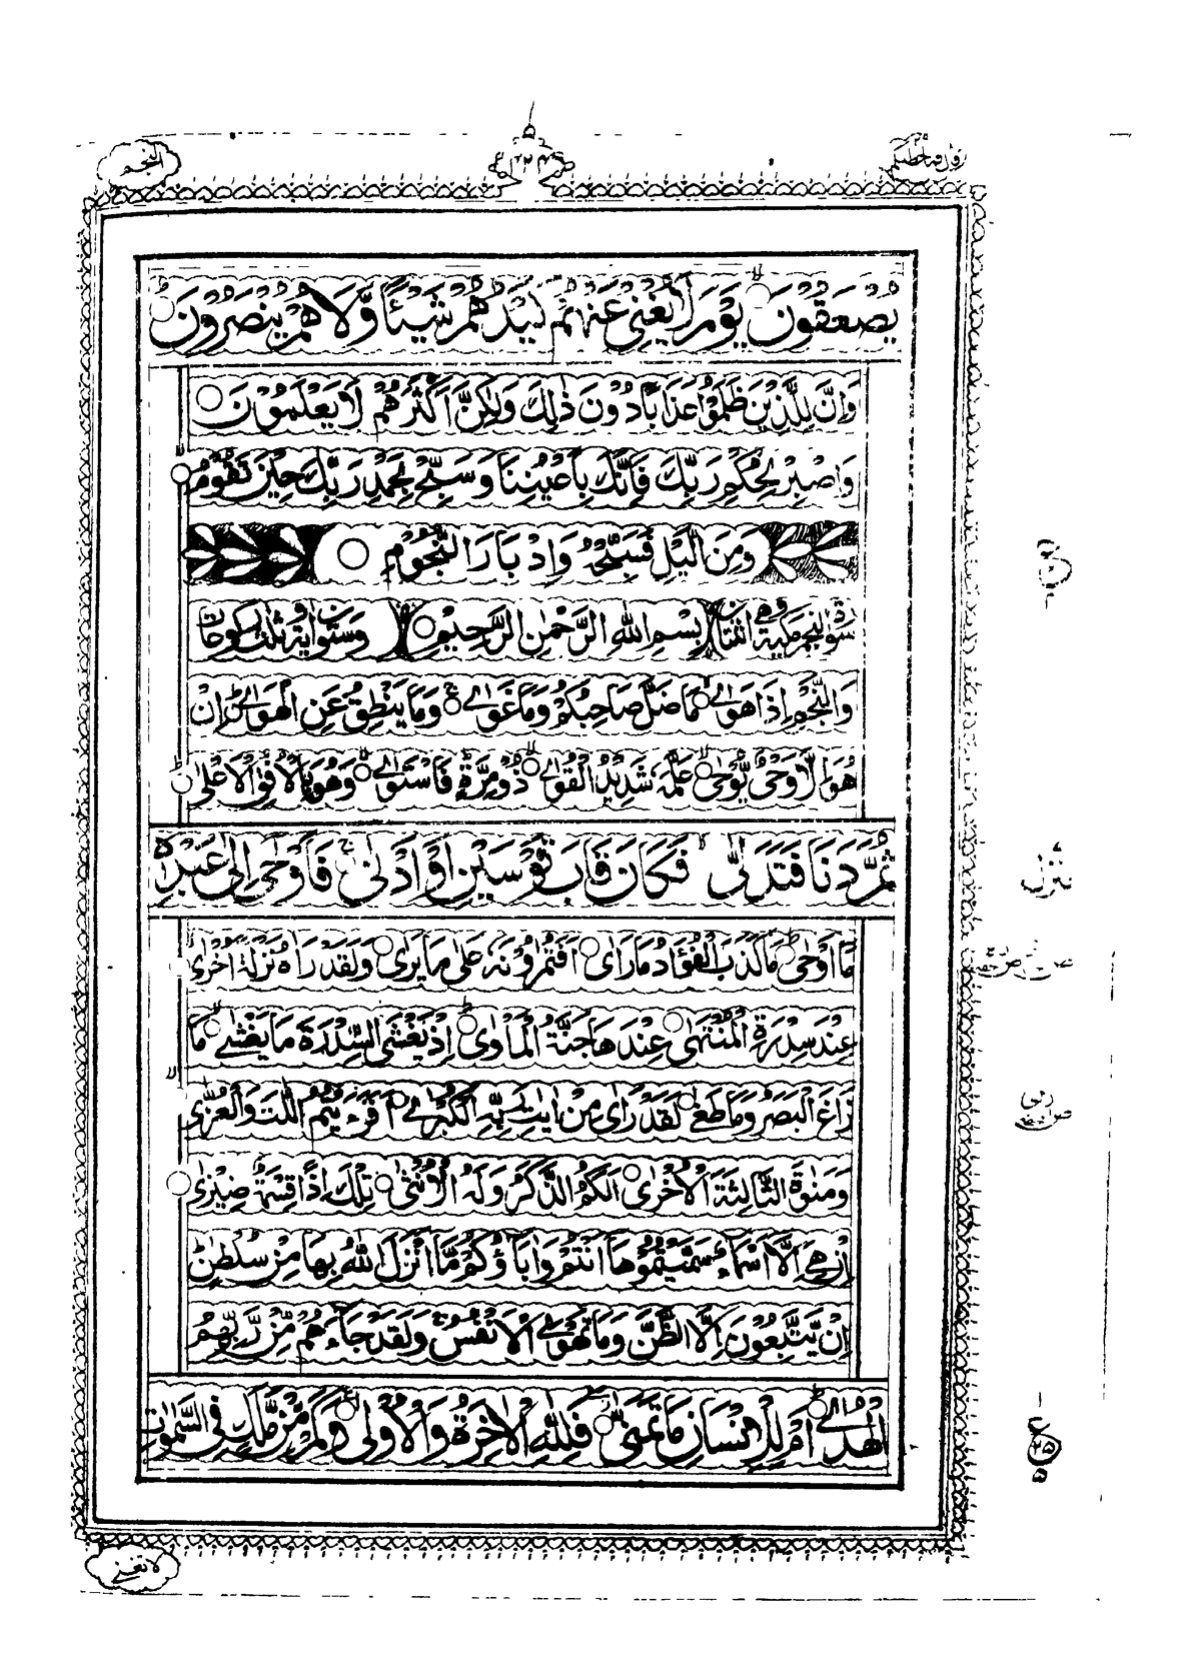 النجم
قال فما خطبكم
يُصْعَقُوْنَ يَوْمَ لَا يُغْنِيْ عَنْهُمْ كَيْدُهُمْ شَيْـًٔا وَّلَا هُمْ يُنْصَرُوْنَ
وَاِنَّ لِلَّذِيْنَ ظَلَمُوْا عَذَابًا دُوْنَ ذٰلِكَ وَلٰكِنَّ اَكْثَرَهُمْ لَا يَعْلَمُوْنَ
وَاصْبِرْ لِحُكْمِ رَبِّكَ فَاِنَّكَ بِاَعْيُنِنَا وَسَبِّحْ بِحَمْدِ رَبِّكَ حِيْنَ تَقُوْمُ
وَمِنَ الَّيْلِ فَسَبِّحْهُ وَاِدْبَارَ النُّجُوْمِ
سورة النجم مكية وهي اثنتان بِسْمِ اللهِ الرَّحْمٰنِ الرَّحِيْمِ وستون اية وثلث ركوعات
وَالنَّجْمِ اِذَا هَوٰى مَا ضَلَّ صَاحِبُكُمْ وَمَا غَوٰى وَمَا يَنْطِقُ عَنِ الْهَوٰى اِنْ
هُوَ اِلَّا وَحْيٌ يُّوْحٰى عَلَّمَهٗ شَدِيْدُ الْقُوٰى ذُوْ مِرَّةٍ فَاسْتَوٰى وَهُوَ بِالْاُفُقِ الْاَعْلٰى
ثُمَّ دَنَا فَتَدَلّٰى فَكَانَ قَابَ قَوْسَيْنِ اَوْ اَدْنٰى فَاَوْحٰى اِلٰى عَبْدِهٖ
مَا اَوْحٰى مَا كَذَبَ الْفُؤَادُ مَا رَاٰى اَفَتُمٰرُوْنَهٗ عَلٰى مَا يَرٰى وَلَقَدْ رَاٰهُ نَزْلَةً اُخْرٰى
عِنْدَ سِدْرَةِ الْمُنْتَهٰى عِنْدَهَا جَنَّةُ الْمَاْوٰى اِذْ يَغْشَى السِّدْرَةَ مَا يَغْشٰى مَا
زَاغَ الْبَصَرُ وَمَا طَغٰى لَقَدْ رَاٰى مِنْ اٰيٰتِ رَبِّهِ الْكُبْرٰى اَفَرَءَيْتُمُ اللّٰتَ وَالْعُزّٰى
وَمَنٰوةَ الثَّالِثَةَ الْاُخْرٰى اَلَكُمُ الذَّكَرُ وَلَهُ الْاُنْثٰى تِلْكَ اِذًا قِسْمَةٌ ضِيْزٰى
اِنْ هِيَ اِلَّا اَسْمَآءٌ سَمَّيْتُمُوْهَا اَنْتُمْ وَاٰبَآؤُكُمْ مَّا اَنْزَلَ اللهُ بِهَا مِنْ سُلْطٰنٍ
اِنْ يَّتَّبِعُوْنَ اِلَّا الظَّنَّ وَمَا تَهْوَى الْاَنْفُسُ وَلَقَدْ جَآءَهُمْ مِّنْ رَّبِّهِمُ
الْهُدٰى اَمْ لِلْاِنْسَانِ مَا تَمَنّٰى فَلِلّٰهِ الْاٰخِرَةُ وَالْاُوْلٰى وَكَمْ مِّنْ مَّلَكٍ فِى السَّمٰوٰتِ
لا تغني